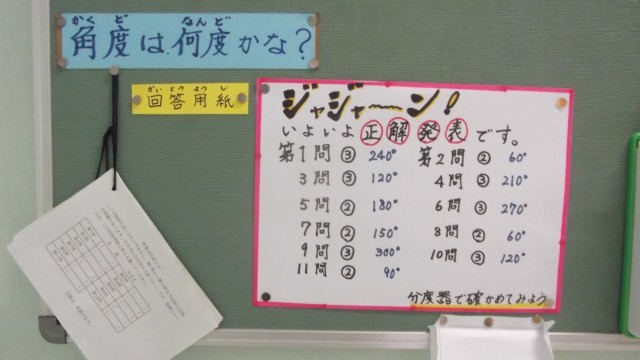 かくど なんど
角度は何度かな?
かいとうようし
回答用紙
ジャジャーン!
いよいよ正解発表です。
第1問 ③ 240° 第2問 ② 60°
3問 ③ 120° 4問 ③ 210°
5問 ② 130° 6問 ③ 270°
7問 ② 150° 8問 ② 60°
9問 ③ 300° 10問 ③ 120°
11問 ② 90°
分度器で確かめてみよう